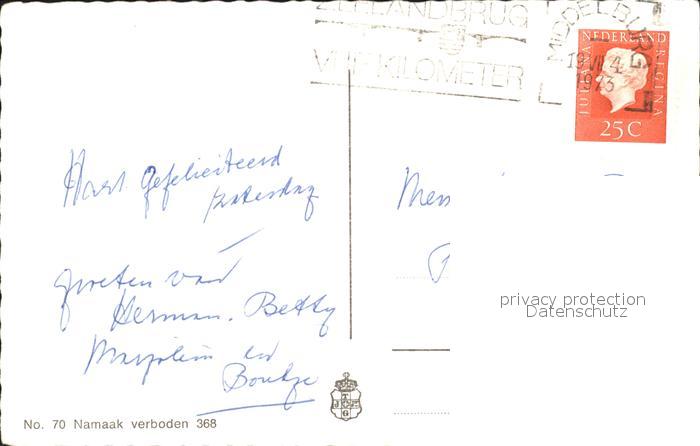 ZEELANDBRUG
VIJF KILOMETER
MIDDELBURG
19 VII 4
1973
NEDERLAND
JULIANA REGINA
25 C
Hart. gefeliciteerd
zaterdag
groeten van
Herman. Betty
Marjolein en
Boukje
Mens
privacy protection
Datenschutz
No. 70 Namaak verboden 368